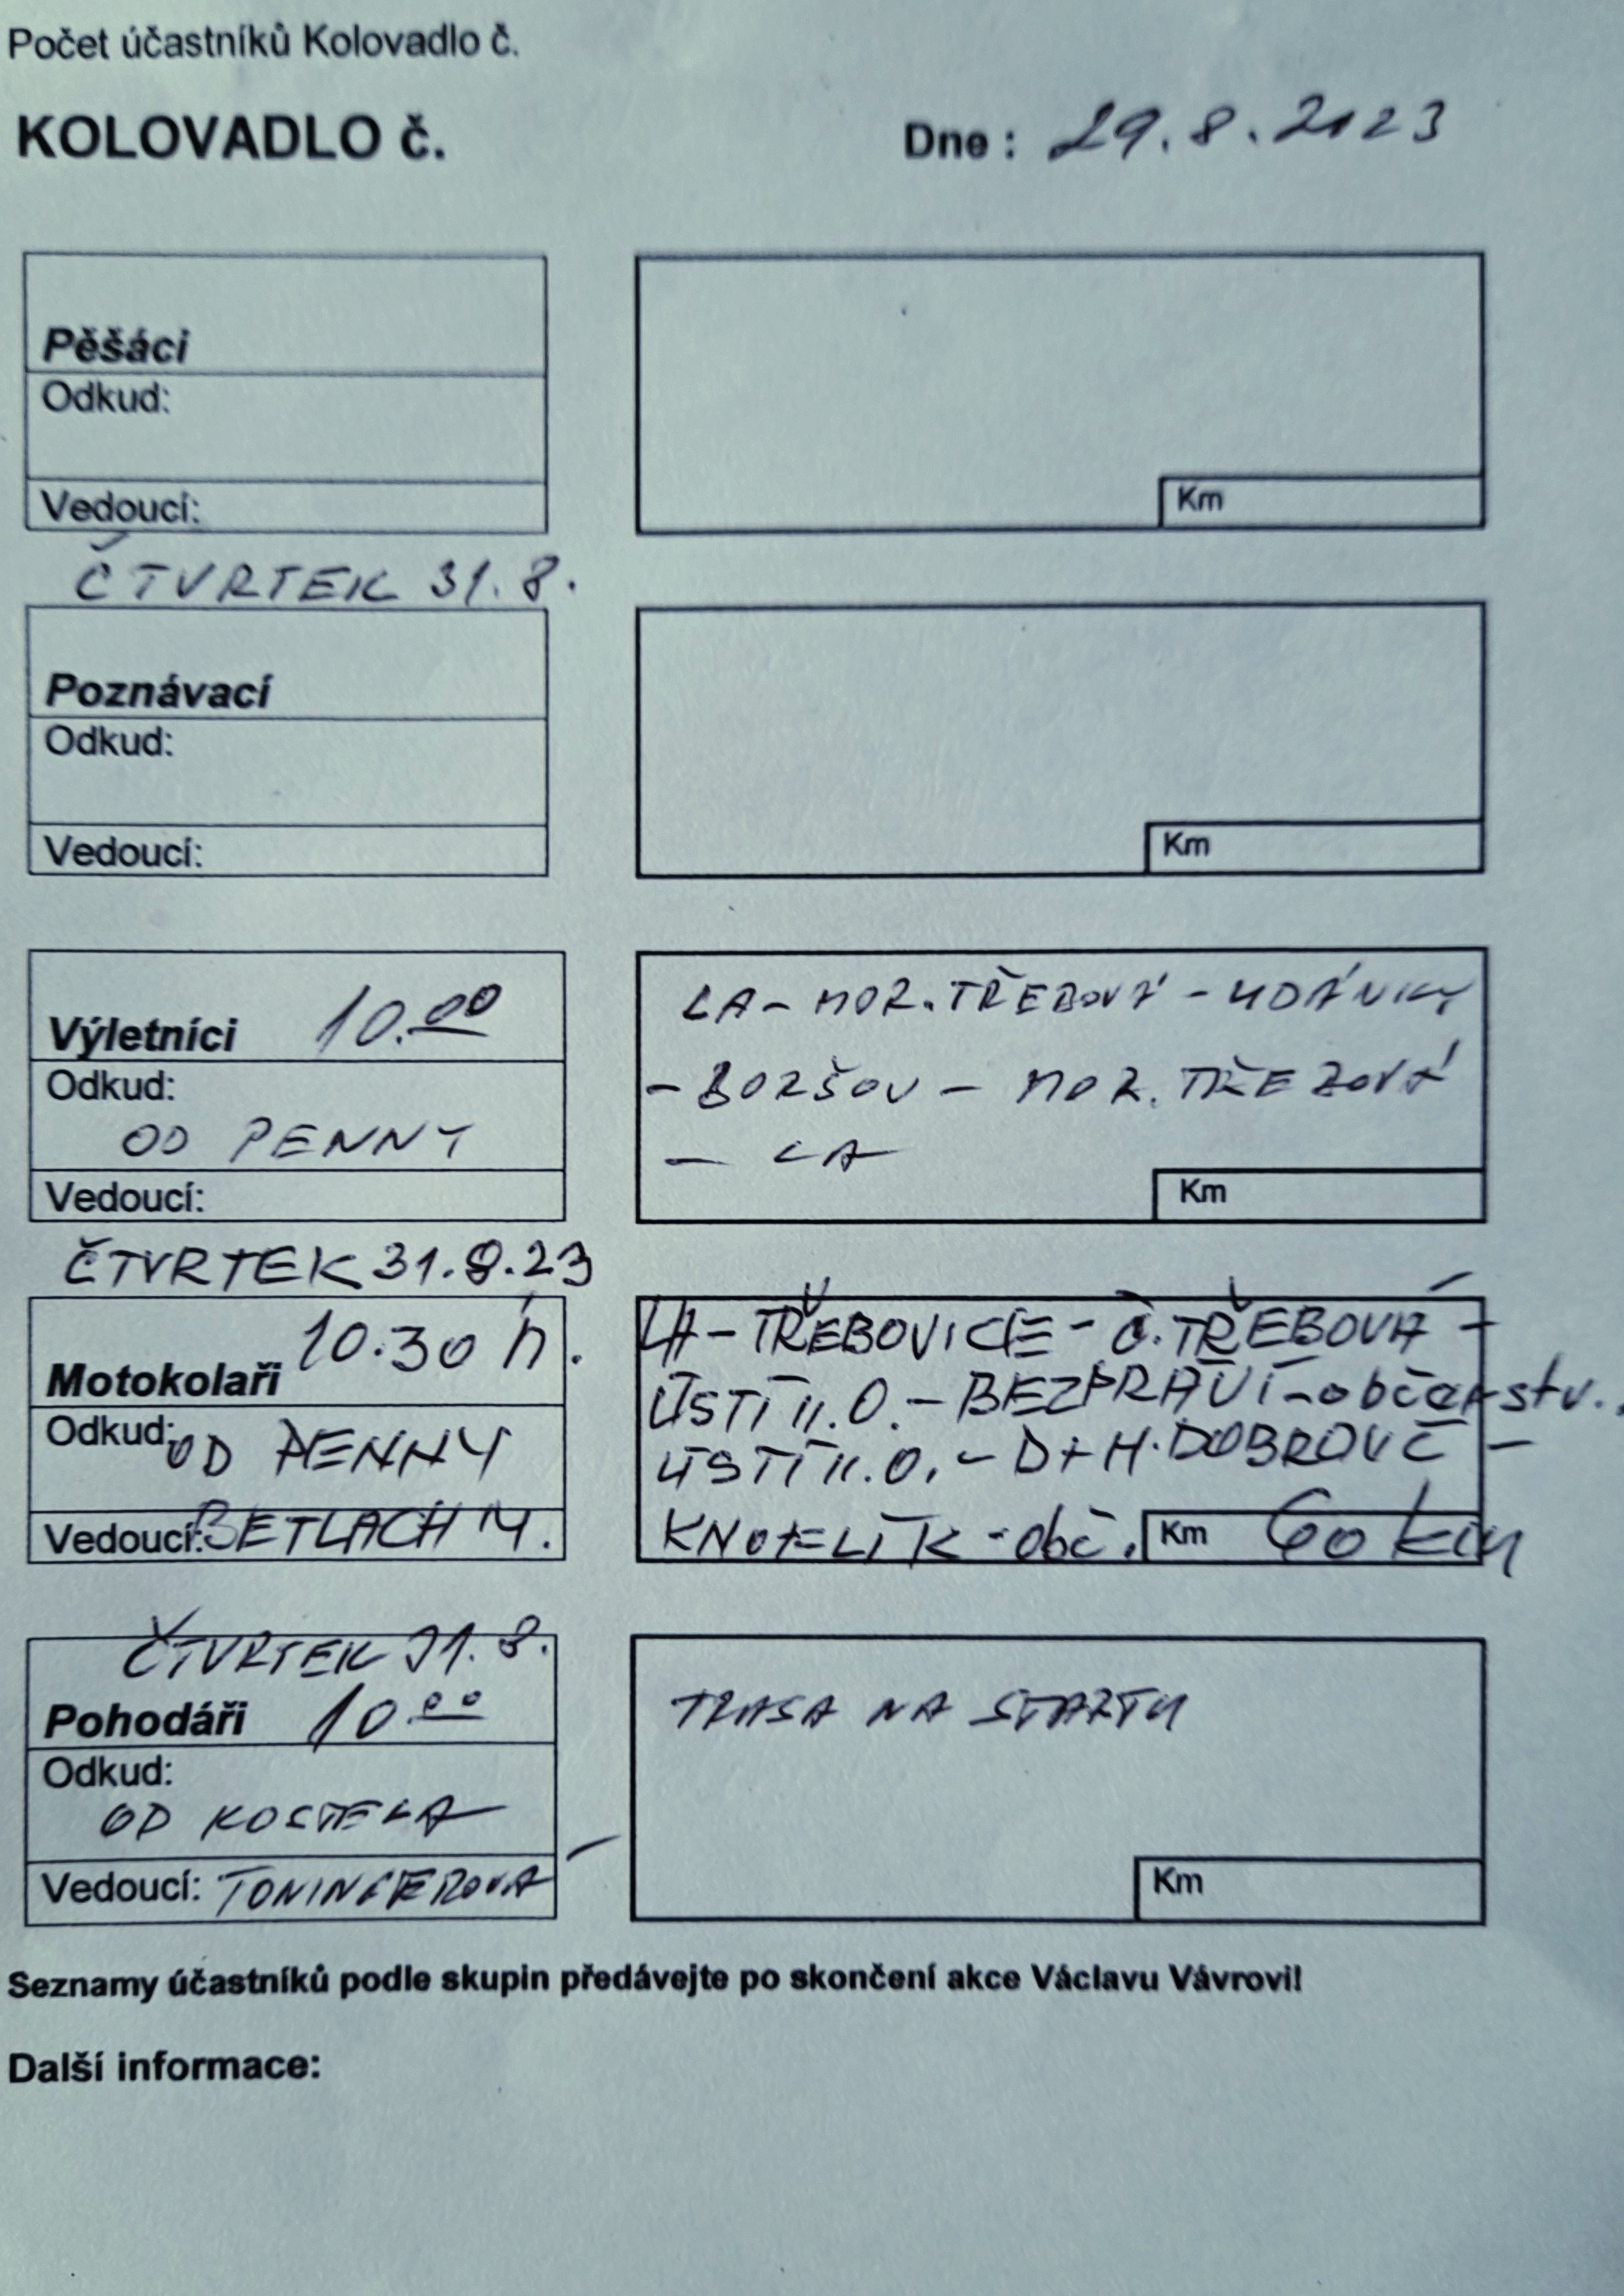 Počet účastníků Kolovadlo č.
KOLOVADLO č.
Dne : 29.8.2023
Pěšáci
Odkud:
Vedoucí:
Km
ČTVRTEK 31.8.
Poznávací
Odkud:
Vedoucí:
Km
Výletníci 10.00
Odkud:
OD PENNY
Vedoucí:
LA - MOR. TŘEBOVÁ - UDÁNKY
- BORŠOV - MOR. TŘEBOVÁ
- LA
Km
ČTVRTEK 31.8.23
Motokolaři 10.30 h.
Odkud: OD PENNY
Vedoucí: BETLACH M.
LA - TŘEBOVICE - Č. TŘEBOVÁ -
ÚSTÍ n. O. - BEZPRÁVÍ - občerstv.,
ÚSTÍ n. O. - D+H. DOBROUČ -
KNOFLÍK - obč.
Km 60 km
ČTVRTEK 31.8.
Pohodáři 10 00
Odkud:
OD KOSTELA
Vedoucí:
TRASA NA STARTU
Km
Seznamy účastníků podle skupin předávejte po skončení akce Václavu Vávrovi!
Další informace: